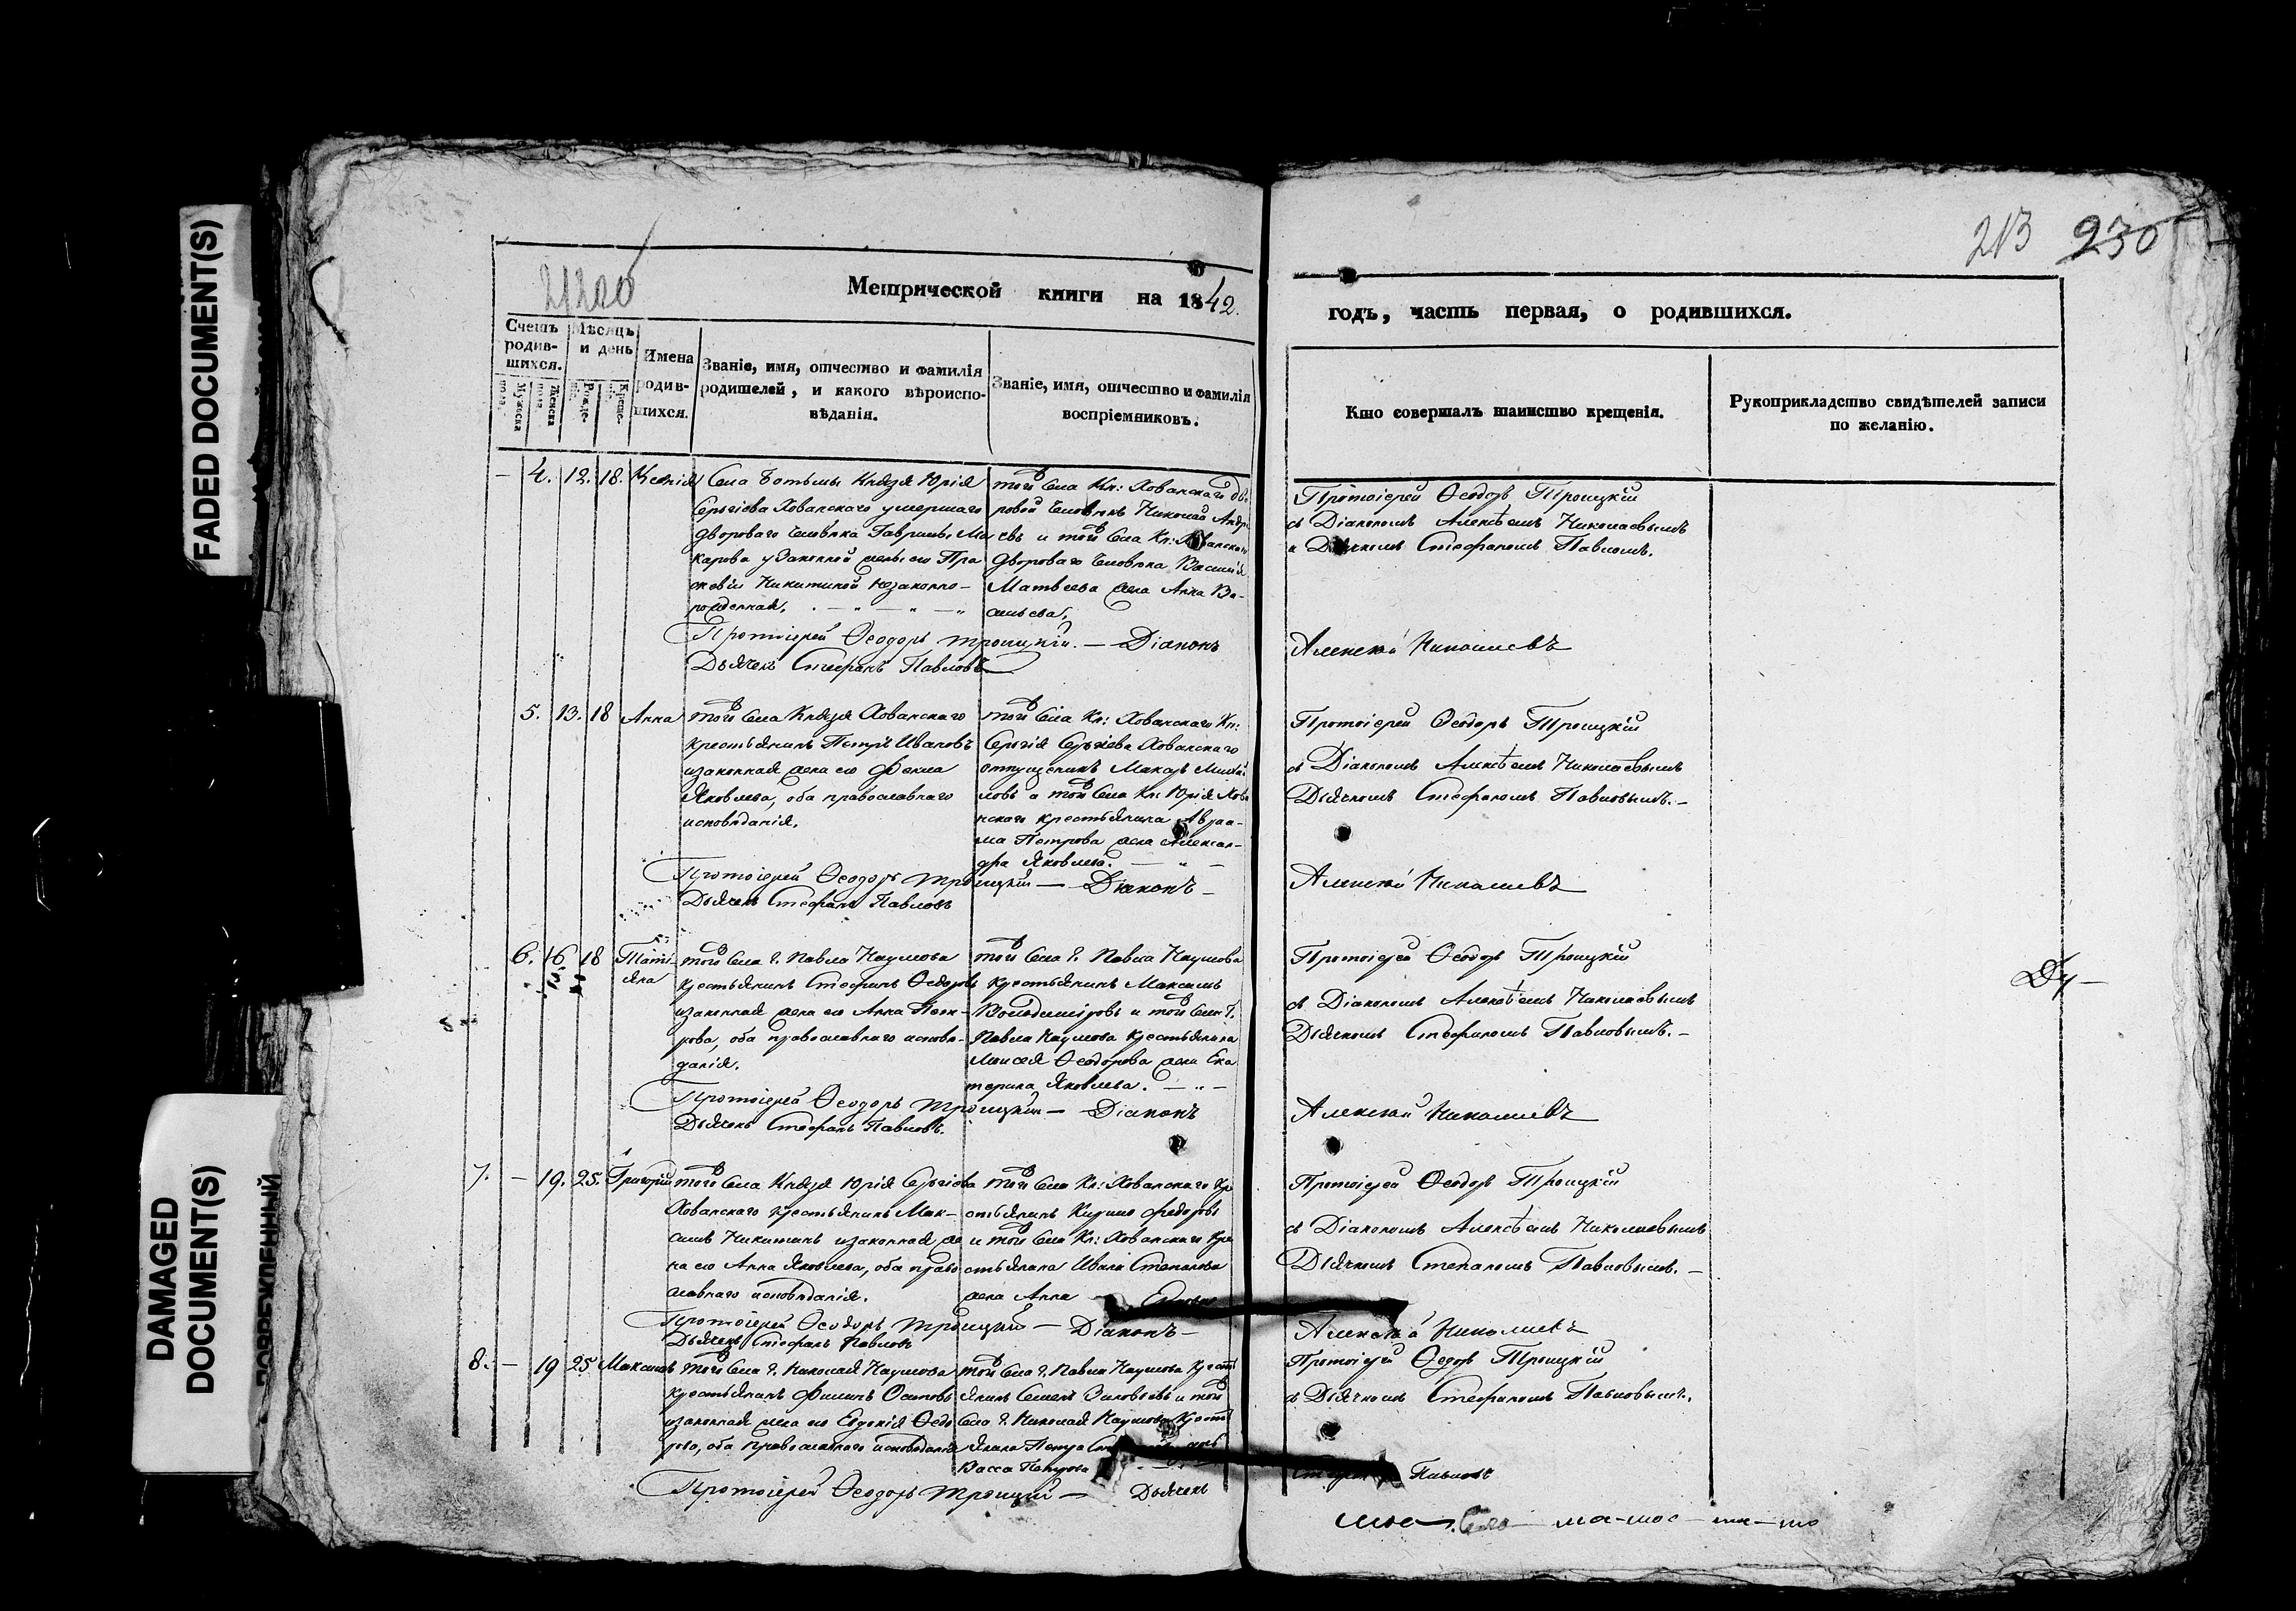 FADED DOCUMENT(S)
DAMAGED
DOCUMENT(S)
213 230
Метрической книги на 1842.
годъ, часть первая, о родившихся.
Счетъ родив-
шихся.
Мужеска пола.
Женска пола.
Мѣсяцъ
и день
Рожде-
Креще-
Имена
родив-
шихся.
Званіе, имя, отчество и фамилія
родителей, и какого вѣроиспо-
вѣданія.
Званіе, имя, отчество и фамилія
воспріемниковъ.
Кто совершалъ таинство крещенія.
Рукоприкладство свидѣтелей записи
по желанію.
— 4. 12. 18. Ксенія
Села Князя Юрія
Сергіева Хованскаго умершаго
двороваго человѣка Гавриила Ма
карова у законной жены его Пра
сковіи Никитиной незаконно-
рожденная.
того Села Кн: Хованскаго дво
ровой человѣкъ Николай Андре
евъ и того Села Кн: Хованскаго
двороваго человѣка Василія
Матвеева жена Анна Ва-
сильева.
Протоіерей Ѳеодоръ Троицкій
съ Діакономъ Алексѣемъ Николаевымъ
и Дьячкомъ Стефаномъ Павловымъ.
Протоіерей Ѳеодоръ Троицкій. — Діаконъ Алексѣй Николаевъ
Дьячекъ Стефанъ Павловъ
5. 13. 18 Анна
того Села Князя Хованскаго
крестьянинъ Петръ Ивановъ
изаконная жена его Фекла
Яковлева, оба православнаго
исповѣданія.
того Села Кн: Хованскаго Кн:
Сергія Сергіева Хованскаго
отпущеникъ Макаръ Михай
ловъ и того Села Кн: Юрія Хова
нскаго крестьянина Авраа-
ма Петрова жена Алексан-
дра Яковлева.
Протоіерей Ѳеодоръ Троицкій
съ Діакономъ Алексѣемъ Николаевымъ
Дьячкомъ Стефаномъ Павловымъ. —
Протоіерей Ѳеодоръ Троицкій — Діаконъ — Алексѣй Николаевъ
Дьячекъ Стефанъ Павловъ
6. 16 18 Тати-
яна
того Села г. Павла Наумова
крестьянинъ Стефанъ Ѳедоровъ
изаконная жена его Анна Пет-
рова, оба православнаго исповѣ-
данія.
того Села г. Павла Наумова
крестьянинъ Максимъ
и того Села г.
Павла Наумова крестьянина
Моисея Ѳеодорова жена Ека
терина Яковлева.
Протоіерей Ѳеодоръ Троицкій
съ Діакономъ Алексѣемъ Николаевымъ
Дьячкомъ Стефаномъ Павловымъ. —
Протоіерей Ѳеодоръ Троицкій — Діаконъ Алексѣй Николаевъ
Дьячекъ Стефанъ Павловъ.
7. — 19. 25. Григорій
того Села Князя Юрія Сергіева
Хованскаго крестьянинъ Мак-
симъ Никитинъ изаконная же
на его Анна Яковлева, оба право
славнаго исповѣданія.
того Села Кн: Хованскаго кре
стьянинъ Кирило Федоровъ
и того Села Кн: Хованскаго кре
стьянина Ивана Степанова
жена Анна
Протоіерей Ѳеодоръ Троицкій
съ Діакономъ Алексѣемъ Николаевымъ
Дьячкомъ Степаномъ Павловымъ. —
Протоіерей Ѳеодоръ Троицкій — Діаконъ — Алексѣй Николаевъ
Дьячекъ Стефанъ Павловъ
8. — 19 25 Максимъ
того Села г. Николая Наумова
крестьянинъ Филипъ Осиповъ
изаконная жена его Евдокія Ѳедо
рова, оба православнаго исповѣданія
того Села г. Павла Наумова крест
янинъ Семенъ и того
Села г. Николая Наумова крест
янина Петра
Васса Петрова
Протоіерей Ѳедоръ Троицкій
съ Дьячкомъ Стефаномъ Павловымъ.
Протоіерей Ѳеодоръ Троицкій — Дьячекъ Стефанъ Павловъ